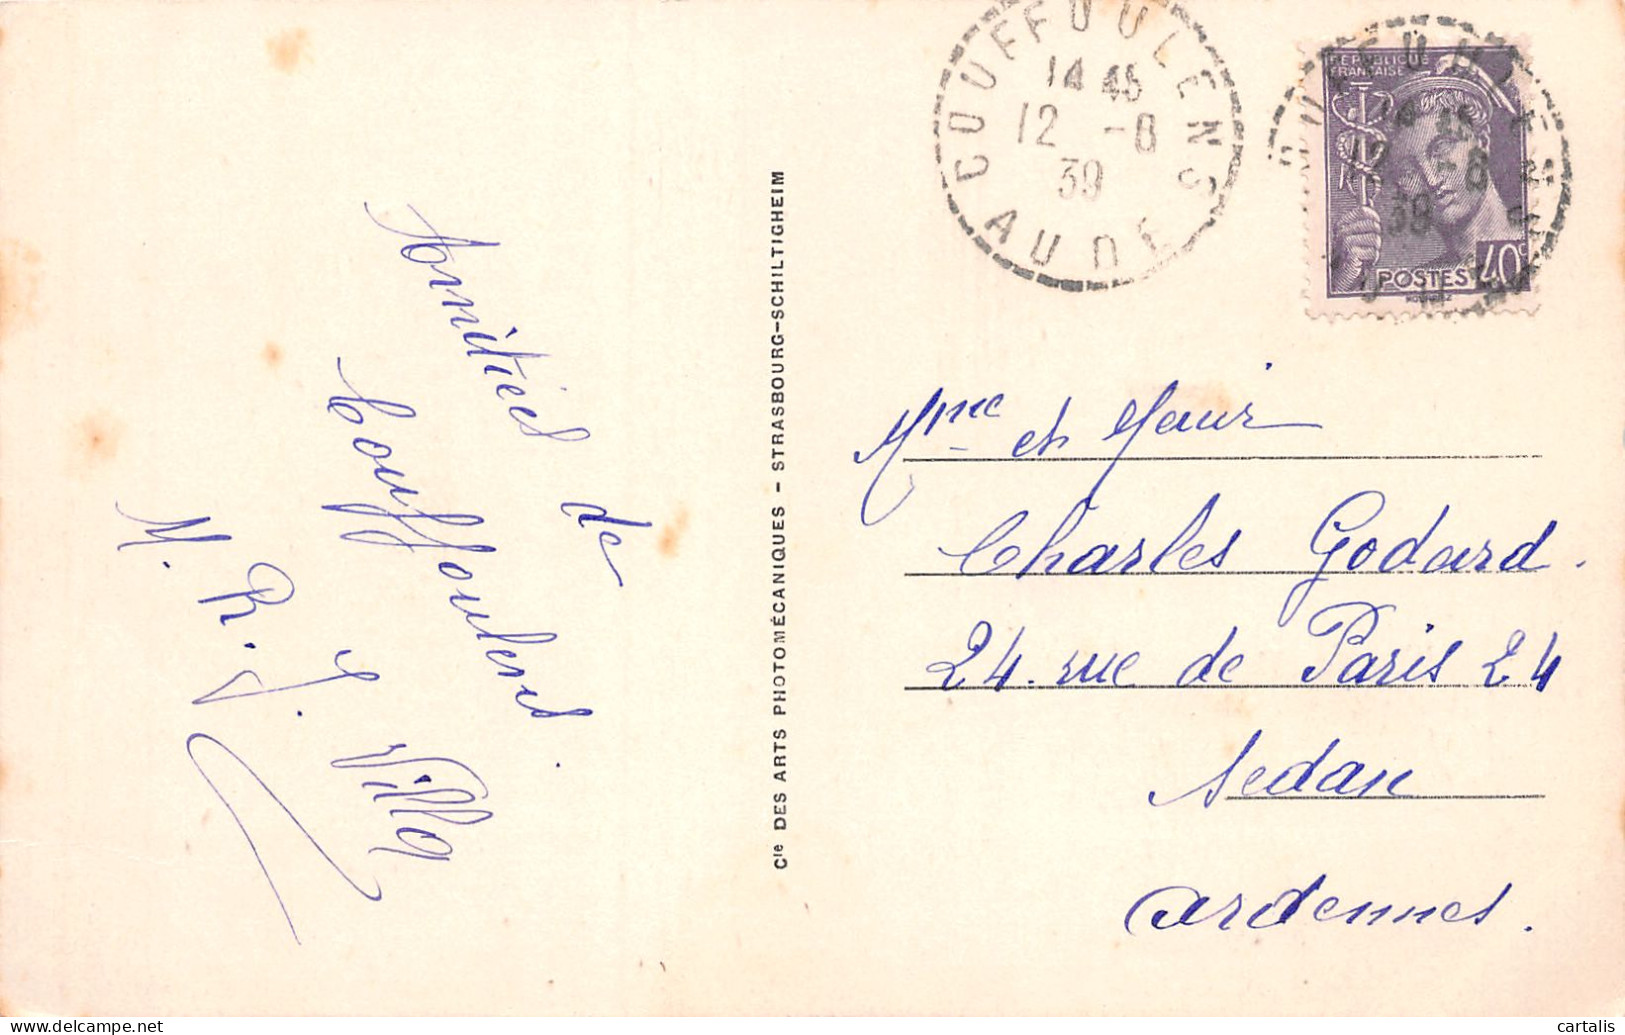 COUFFOULENS
14 45
12 -8
39
AUDE
RÉPUBLIQUE
FRANÇAISE
12 -8
39
POSTES
40c
Amitiés de
Couffoulens.
M. R. J. Villa
Cie DES ARTS PHOTOMÉCANIQUES - STRASBOURG-SCHILTIGHEIM
Mme et
Charles Godard.
24. rue de Paris 24
Sedan
Ardennes.
delcampe.net
cartalis